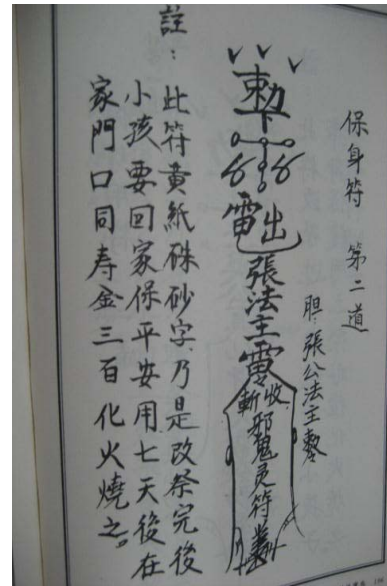 保身符 第二道
胆:張公法主敕令
敕下
電出
張法主
雷令
收斬邪鬼灵符
註:
此符黄紙硃砂字.乃是改祭完後
小孩要回家保平安用七天後在
家門口同寿金三百化火燒之。